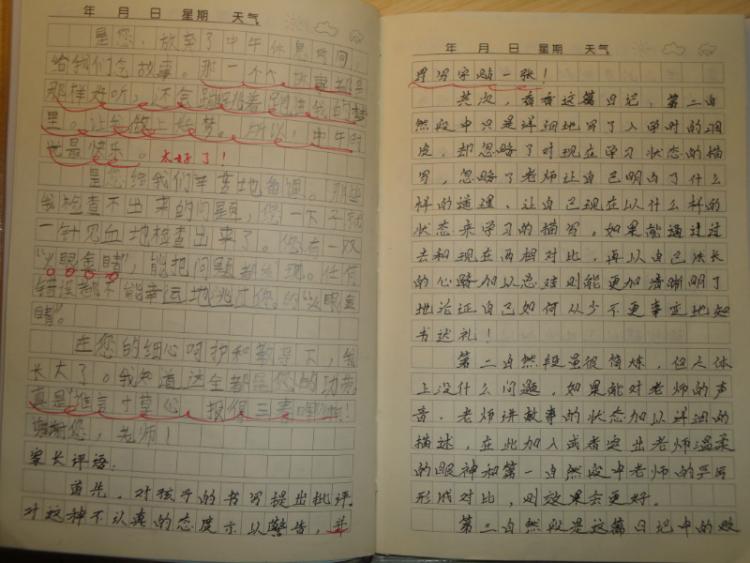 年 月 日 星期 天气
是您,放弃了中午休息时间,
给我们念故事。那一个个故事都是
那样好听,还会
里。让我做上好梦。所以,中午时
也最快乐。太好了!
是您给我们辛苦地备课。那些
我检查不出来的问题,您一下子就
一针见血地检查出来了。您有一双
“火眼金睛”,能把问题都发现。任何
错误都不能幸运地逃过您的“火眼金
睛”。
在您的细心呵护和教导下,我
长大了。我知道这全都是您的功劳。
真是“谁言寸草心,报得三春晖”啊!
谢谢您,老师!
家长评语:
首先,对孩子的书写提出批评。
对这种不认真的态度示以警告,并
年 月 日 星期 天气
罚写字帖一张!
其次,看看这篇日记,第二自
然段中只是详细地写了入学时的
度,却忽略了对现在学习状态的描
写,忽略了老师让自己明白了什么
样的道理,让自己现在以什么样的
状态来学习的描写,如果能通过过
去和现在两相对比,再以自己成长
的心路加以总结则能更加清晰明了
地论证自己如何从少不更事变地知
书达礼!
第二自然段虽很简炼,但大体
上没什么问题,如果能对老师的声
音、老师讲故事的状态加以详细的
描述,在此加入或者突出老师温柔
的眼神和第一自然段中老师的严厉
形成对比,则效果会更好。
第三自然段是这篇日记中的败